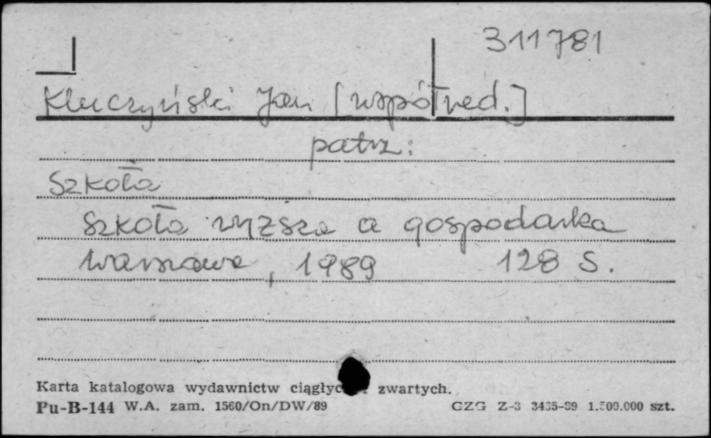 311781
Kluczyński Jan [współred.]
patrz:
Szkoła
Szkoła wyższa a gospodarka
Warszawa, 1989 128 S.
Karta katalogowa wydawnictw ciągłych zwartych.
Pu-B-144 W.A. zam. 1560/On/DW/89 CZG Z-3 3435-89 1.500.000 szt.